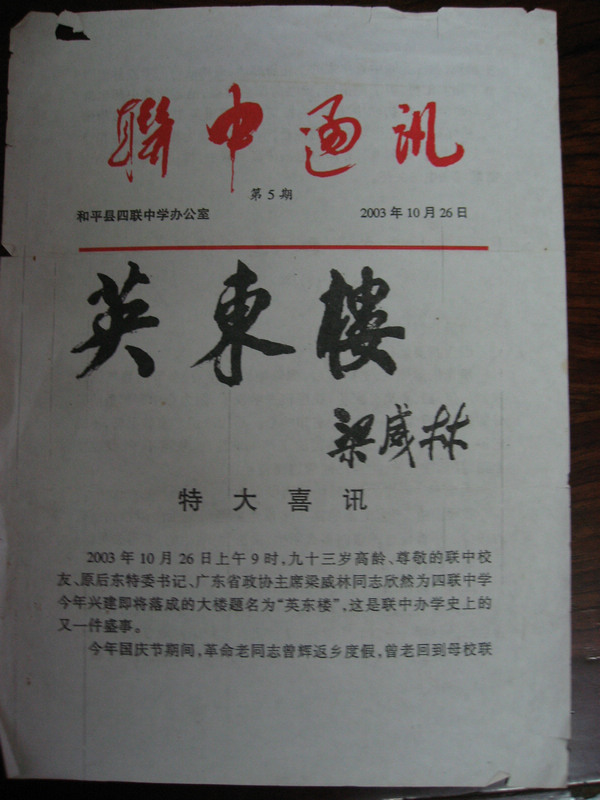 聯中通訊
第5期
和平县四联中学办公室 2003年10月26日
英東樓
梁威林
特大喜讯
2003年10月26日上午9时,九十三岁高龄、尊敬的联中校
友、原后东特委书记、广东省政协主席梁威林同志欣然为四联中学
今年兴建即将落成的大楼题名为“英东楼”,这是联中办学史上的
又一件盛事。
今年国庆节期间,革命老同志曾辉返乡度假,曾老回到母校联